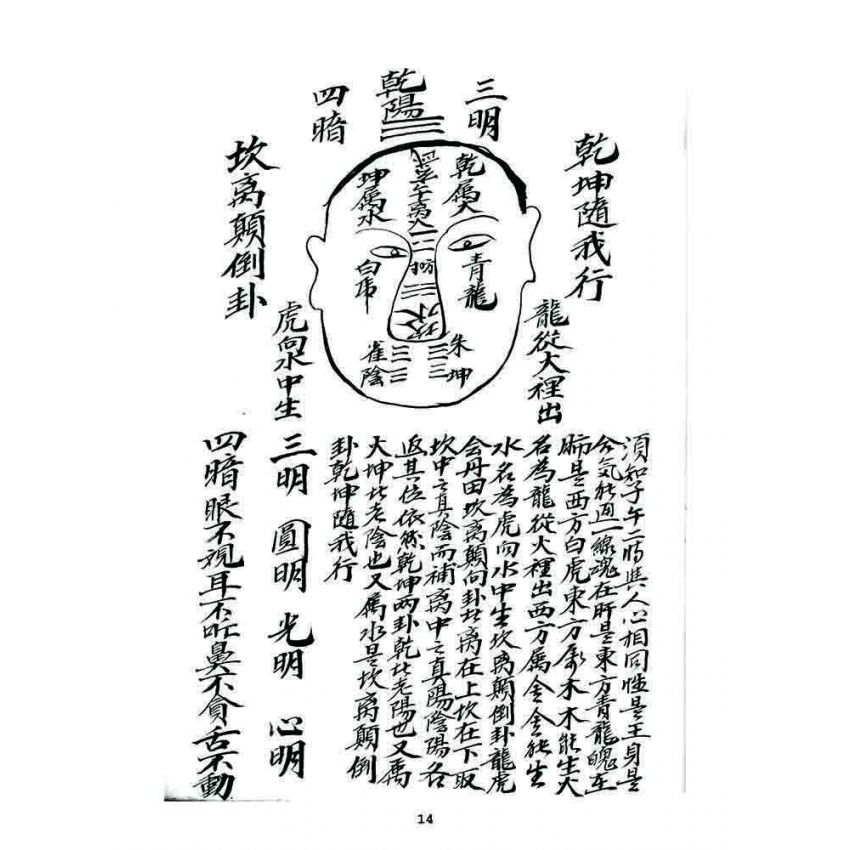 三明
乾陽
四暗
乾坤隨我行
坎离顛倒卦
乾屬火
玄武
子离火
坤屬水
青龍
白虎
坎水
朱坤
雀陰
龍從火裡出
虎向水中生
須知子午二時與人心相同性是王身是
肺是西方白虎東方屬木木能生火
名為龍從火裡出西方属金金能生
水名為虎向水中生坎离顛倒卦龍虎
会丹田坎离顛向卦此离在上坎在下取
坎中之真陰而補离中之真陽陰陽各
返其位依然乾坤两卦乾比老陽也又屬
火坤比老陰也又属水是坎离顛倒
卦乾坤隨我行
三明 圓明 光明 心明
四暗眼不視耳不听鼻不貪舌不動
14